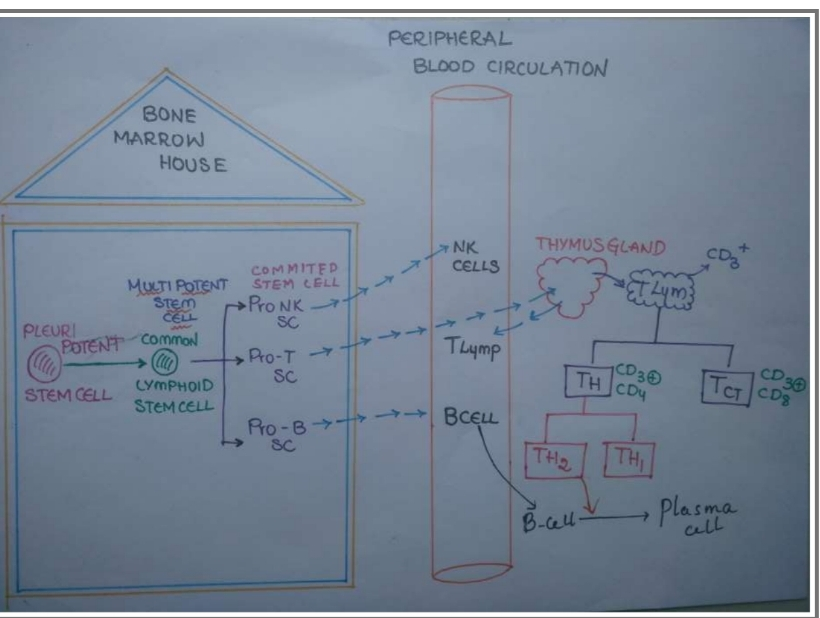 PERIPHERAL
BLOOD CIRCULATION
BONE
MARROW
HOUSE
PLEURI
POTENT
STEM CELL
MULTI POTENT
STEM
CELL
COMMON
LYMPHOID
STEM CELL
COMMITED
STEM CELL
Pro NK
SC
Pro-T
SC
Pro-B
SC
NK
CELLS
TLymp
BCELL
THYMUS GLAND
T Lym
CD3+
TH
CD3⊕
CD4
TCT
CD3⊕
CD8
TH2
TH1
B-cell
Plasma
cell